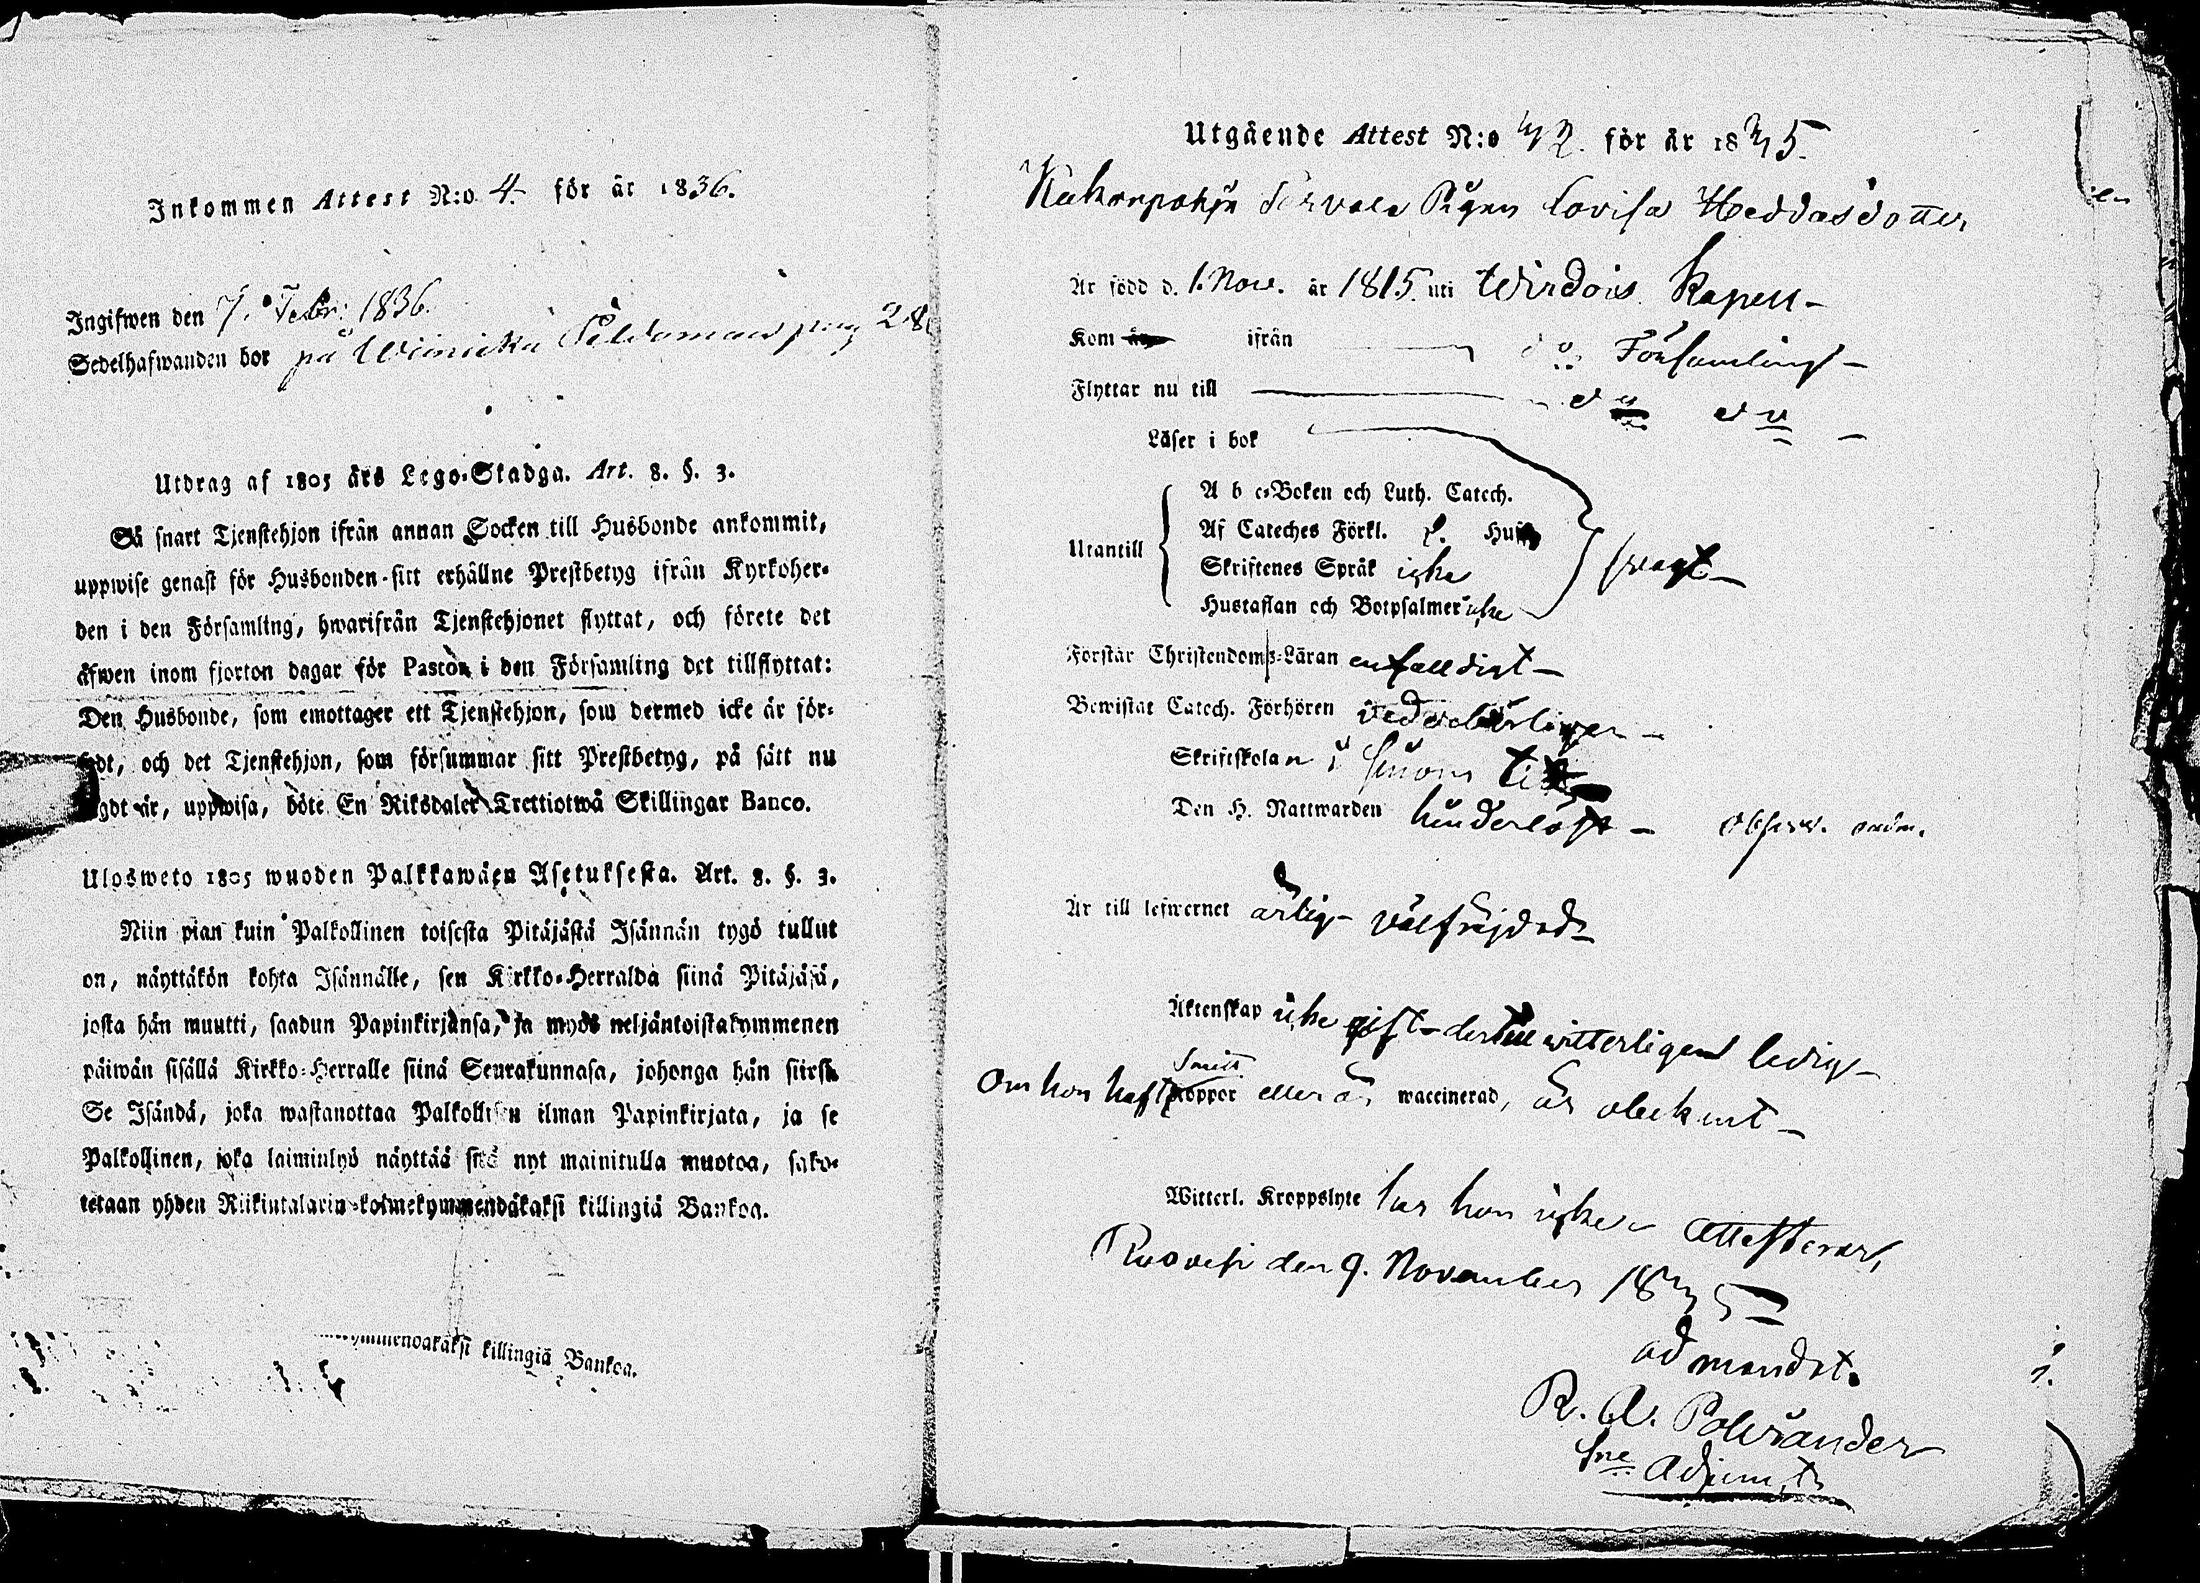 Inkommen Attest N:o 4. för år 1836.
Ingifwen den 7. Febr. 1836.
Sedelhafwanden bor på
Utdrag af 1805 års Lego-Stadga. Art. 8. §. 3.
Så snart Tjenstehjon ifrån annan Socken till Husbonde ankommit,
uppwise genast för Husbonden sitt erhållne Prestbetyg ifrån Kyrkoher-
den i den Församling, hwarifrån Tjenstehjonet flyttat, och förete det
äfwen inom fjorton dagar för Pastor i den Församling det tillflyttat:
Den Husbonde, som emottager ett Tjenstehjon, som dermed icke är för-
sedt, och det Tjenstehjon, som försummar sitt Prestbetyg, på sätt nu
sagdt är, uppwisa, böte En Riksdaler Trettiotwå Skillingar Banco.
Ulosweto 1805 wuoden Palkkawäen Asetuksesta. Art. 8. §. 3.
Niin pian kuin Palkollinen toisesta Pitäjästä Isännän tygö tullut
on, näyttäkön kohta Isännälle, sen Kirkko-Herralda siinä Pitäjäsä,
josta hän muutti, saadun Papinkirjansa, ja myös neljäntoistakymmenen
päiwän sisällä Kirkko-Herralle siinä Seurakunnasa, johonga hän siirsä
Se Isändä, joka wastanottaa Palkollisen ilman Papinkirjata, ja se
Palkollinen, joka laiminlyö näyttää sitä nyt mainitulla muotoa, sako-
tetaan yhden Riikintalarin kolmekymmendäkaksi killingiä Bankoa.
killingiä Bankoa.
Utgående Attest N:o 42. för år 1835.
Pigan Lovisa Heddasdotter
Är född d. 1. Nov. år 1815. uti Wirdois Kapell –
Kom ifrån do Församling –
Flyttar nu till do do –
Läser i bok
Utantill
A b c-Boken och Luth. Catech.
Af Cateches Förkl.
Skriftenes Språk icke
Hustaflan och Botpsalmer icke
swagt –
Förstår Christendoms-Läran enfalldigt –
Bewistat Catech. Förhören vederbörligen –
Skriftskolan i sinom tid
Den H. Nattwarden hinderlöst – observ. onöm.
Är till lefwernet ärlig – välfrejdad –
Äktenskap icke gift – dertill witterligen ledig –
Om hon haft Smitt koppor eller är waccinerad, är obekant –
Witterl. Kroppslyte har hon icke attesterar,
Ruovesi den 9. November 1835
ad mandat.
R. A. Polviander
Sne Adjunct.